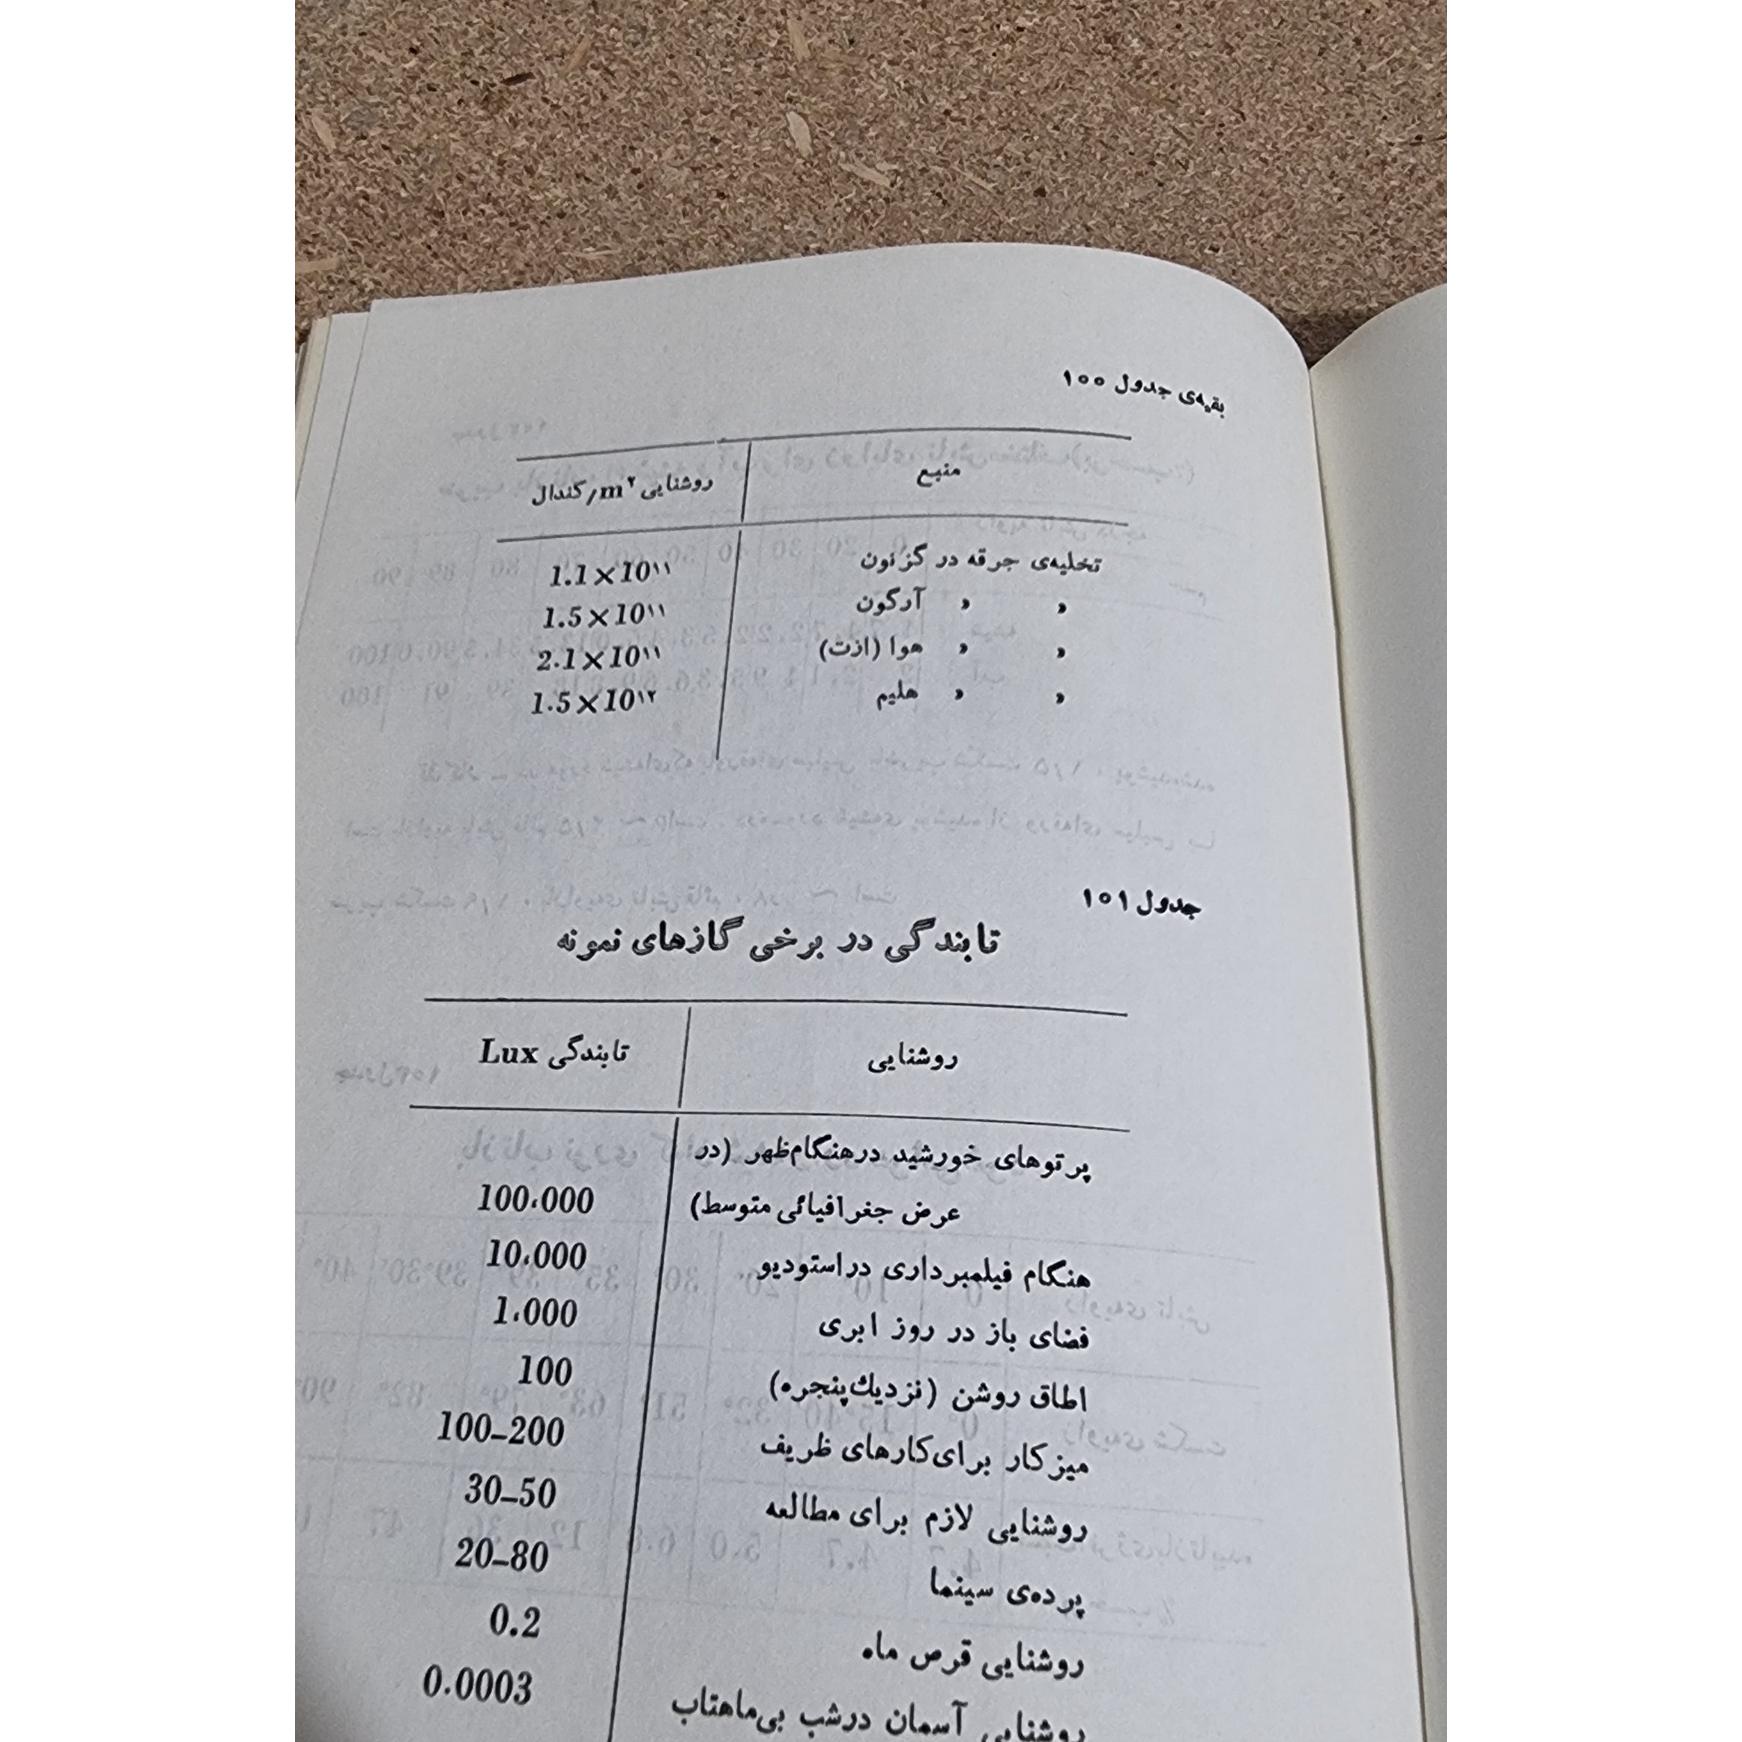 بقیه‌ی جدول ۱۰۰
منبع روشنایی کندال/m۲
تخلیه‌ی جرقه در گزنون 1.1×10۱۱
» » آرگون 1.5×10۱۱
» » هوا (ازت) 2.1×10۱۱
» » هلیم 1.5×10۱۲
جدول ۱۰۱
تابندگی در برخی گازهای نمونه
روشنایی تابندگی Lux
پرتوهای خورشید درهنگام‌ظهر (در
عرض جغرافیائی متوسط) 100،000
هنگام فیلمبرداری دراستودیو 10،000
فضای باز در روز ابری 1،000
اطاق روشن (نزدیك‌پنجره) 100
میزکار برای‌کارهای ظریف 100–200
روشنایی لازم برای مطالعه 30–50
پرده‌ی سینما 20–80
روشنایی قرص ماه 0.2
روشنایی آسمان درشب بی‌ماهتاب 0.0003